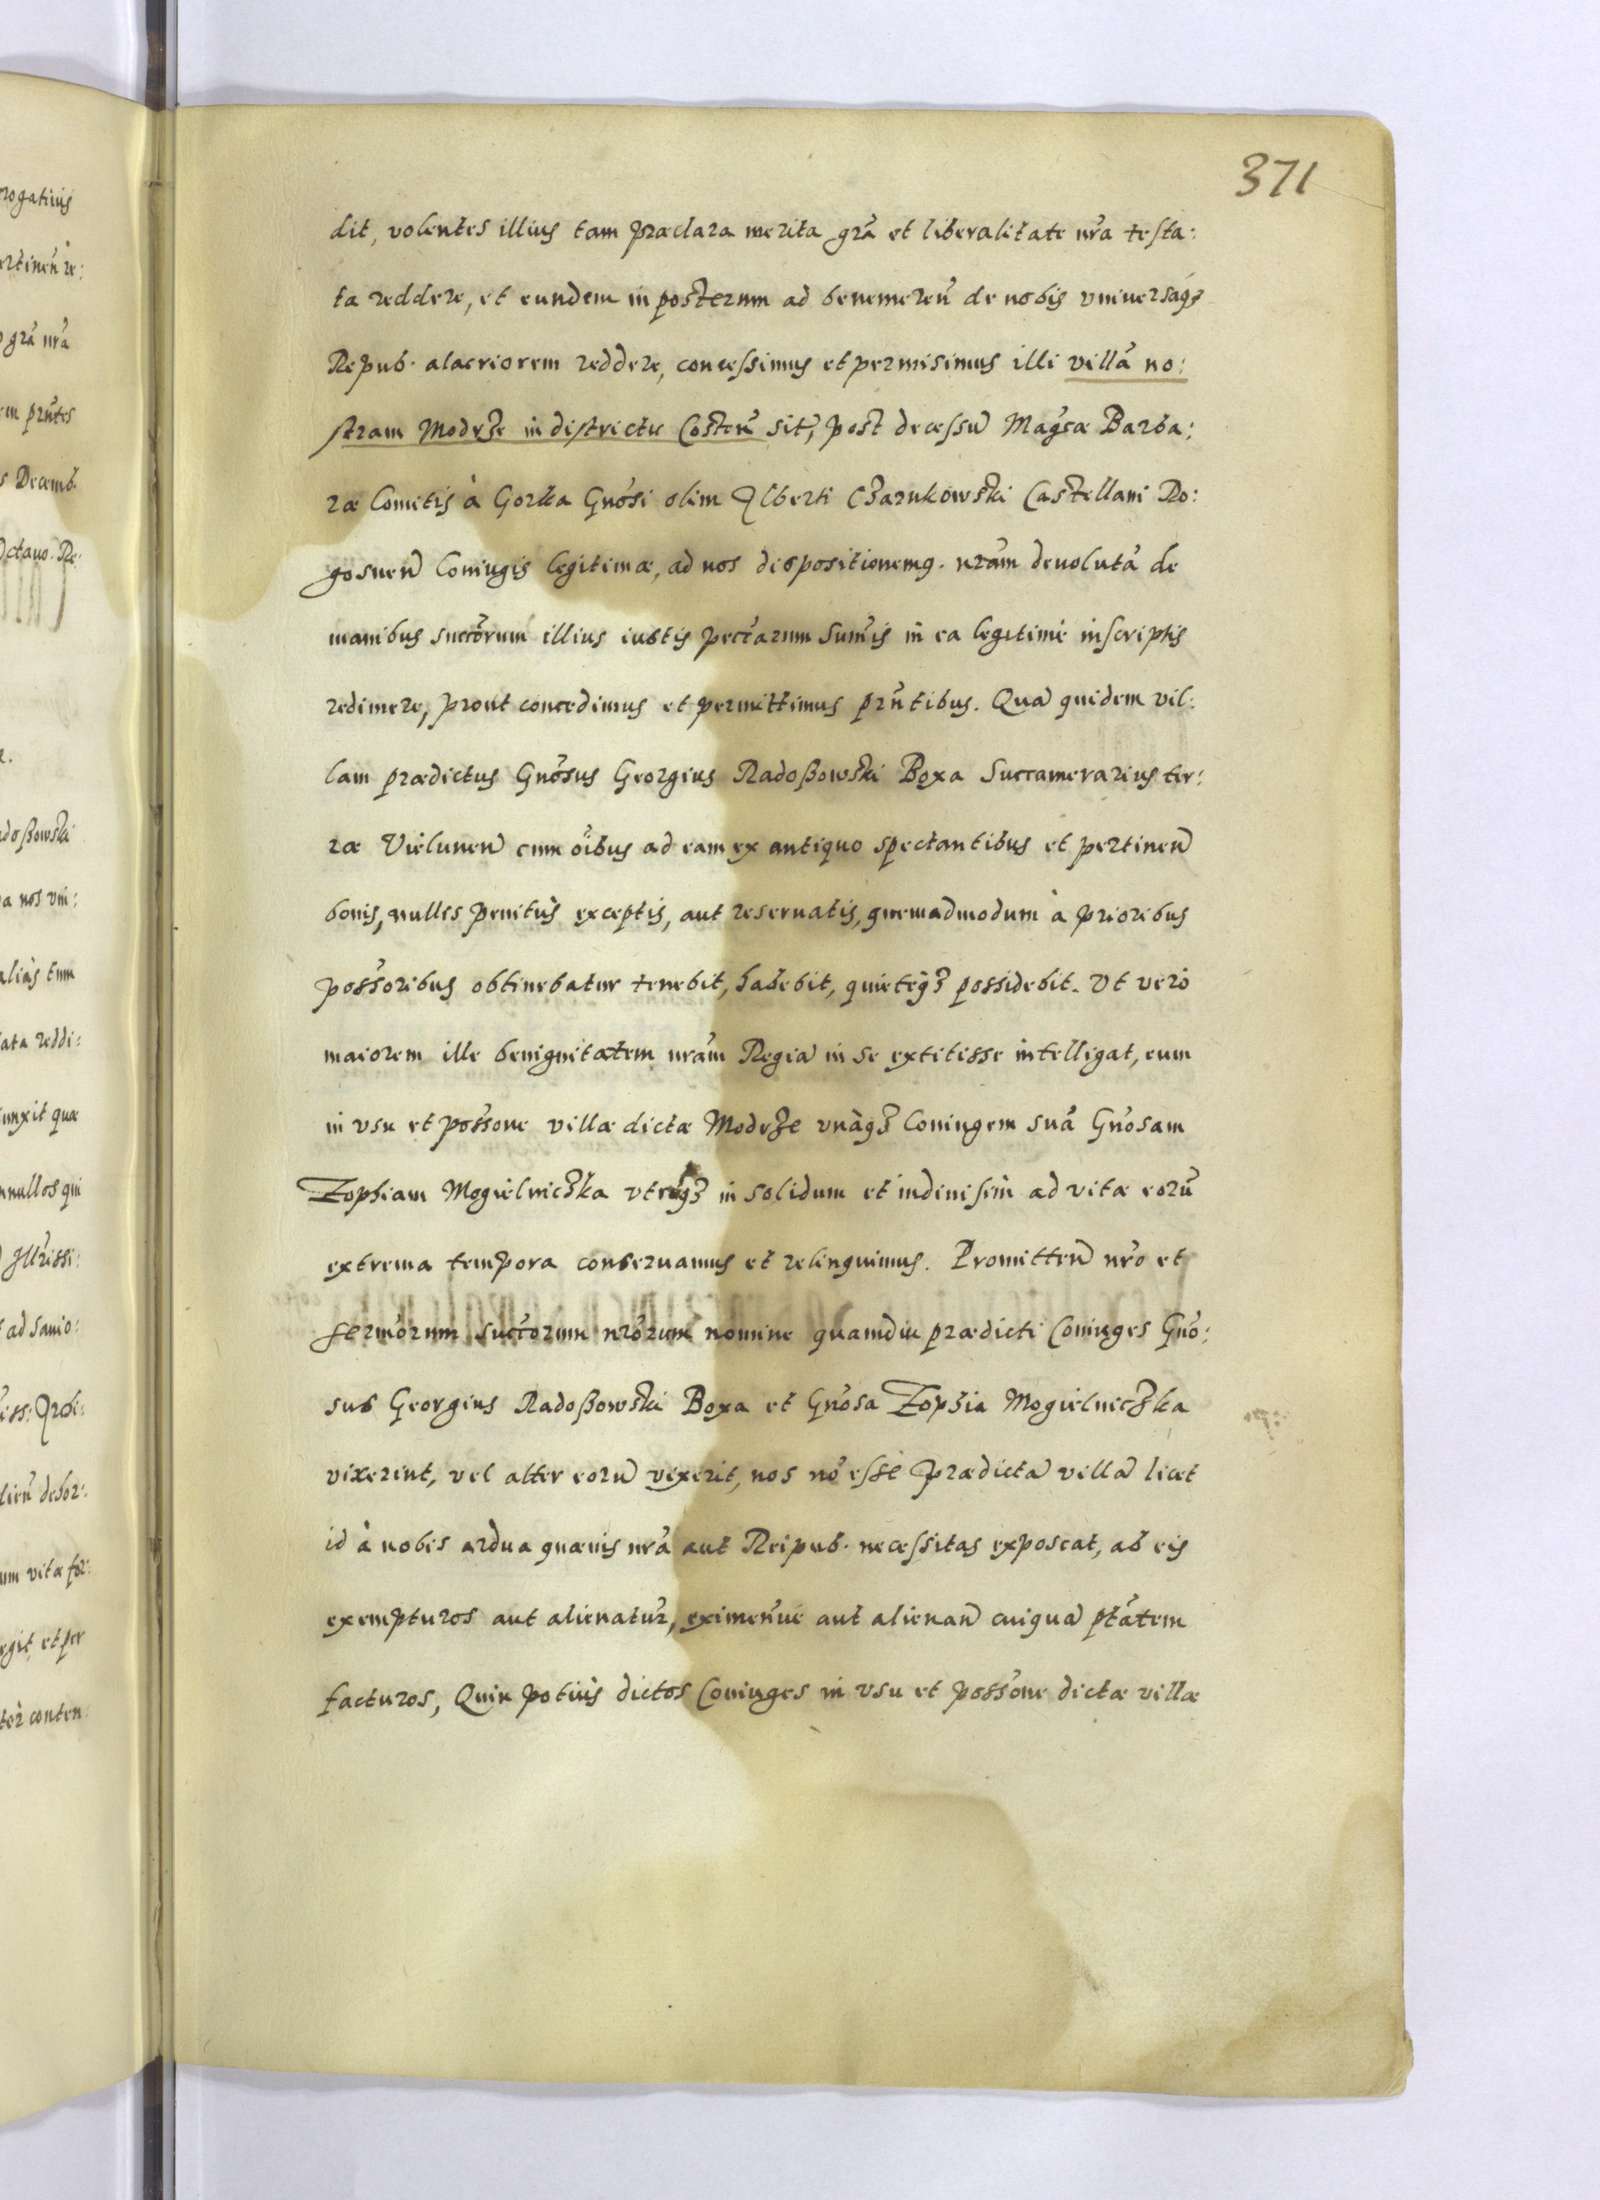 371
dit, volentes illius tam præclara merita grã et liberalitate nrã testa:
ta reddere, et eundem in posterum ad benemereñ de nobis vniversaqȝ
Repub. alacriorem reddere, concessimus et permisimus illi villã no:
stram Modrȝe in districtu Costeñ sit, post decessũ Magcæ Barba:
ræ Comitis à Gorka Gnosi olim Alberti Cȝarnkowski Castellani Ro:
gosneñ Coniugis legitimæ, ad nos dispositionemq. nrãm devolutã de
manibus succõrum illius iustis peccũarum sum̃is in ea legitimè inscriptis
redimere, prout concedimus et permittimus prñtibus. Quã quidem vil:
lam prædictus Gnõsus Georgius Radoßowski Boxa Succamerarius ter:
ræ Vieluneñ cum oĩbus ad eam ex antiquo spectantibus et pertineñ
bonis, nullis penitùs exceptis, aut reseruatis, quemadmodum à prioribus
possõribus obtinebatur tenebit, habebit, quietèqȝ possidebit. Vt verò
maiorem ille benignitatem nrãm Regiã in se extitisse intelligat, eum
in vsu et possõne villæ dictæ Modrȝe vnàqȝ Coniugem suã Gnõsam
Zophiam Mogielnicȝka vtrũqȝ in solidum et indiuisim̀ ad vitæ eorũ
extrema tempora conseruamus et relinquimus. Promitteñ nrõ et
sermõrum succõrum nrõrum nomine quamdiu prædicti Coniuges Gnõ:
sus Georgius Radoßowski Boxa et Gnõsa Zophia Mogielnicȝka
vixerint, vel alter eorũ vixerit, nos nõ esse prædictã villã licet
id à nobis ardua quæuis nrã aut Reipub. necessitas exposcat, ab eis
exempturos aut alienatur̃, eximen̄ue aut alienañ cuiquã ptãtem
facturos, Quin potiùs dictos Coniuges in vsu et possõne dictæ villæ